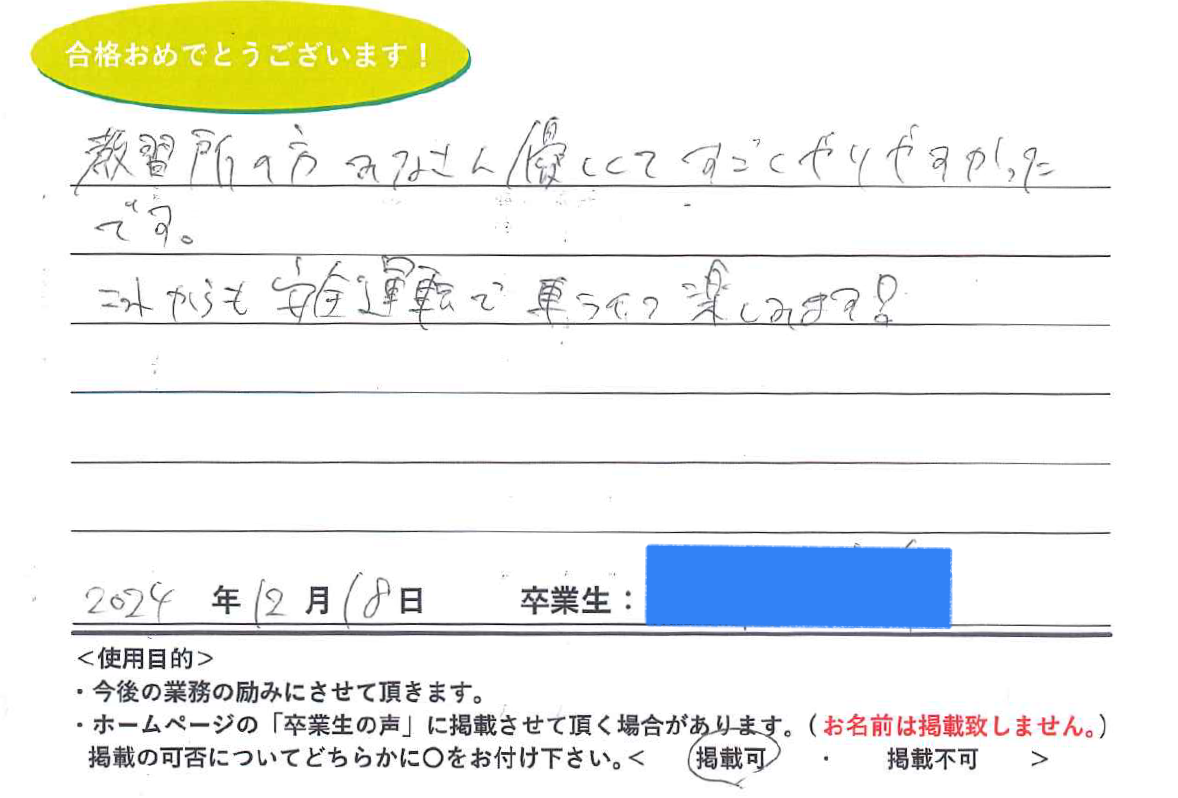 合格おめでとうございます！
教習所の方みなさん優しくてすごくやりやすかった
です。
これからも安全運転で車ライフ楽しみます！
2024年12月18日 卒業生：
＜使用目的＞
・今後の業務の励みにさせて頂きます。
・ホームページの「卒業生の声」に掲載させて頂く場合があります。（お名前は掲載致しません。）
掲載の可否についてどちらかに〇をお付け下さい。＜ 掲載可 ・ 掲載不可 ＞